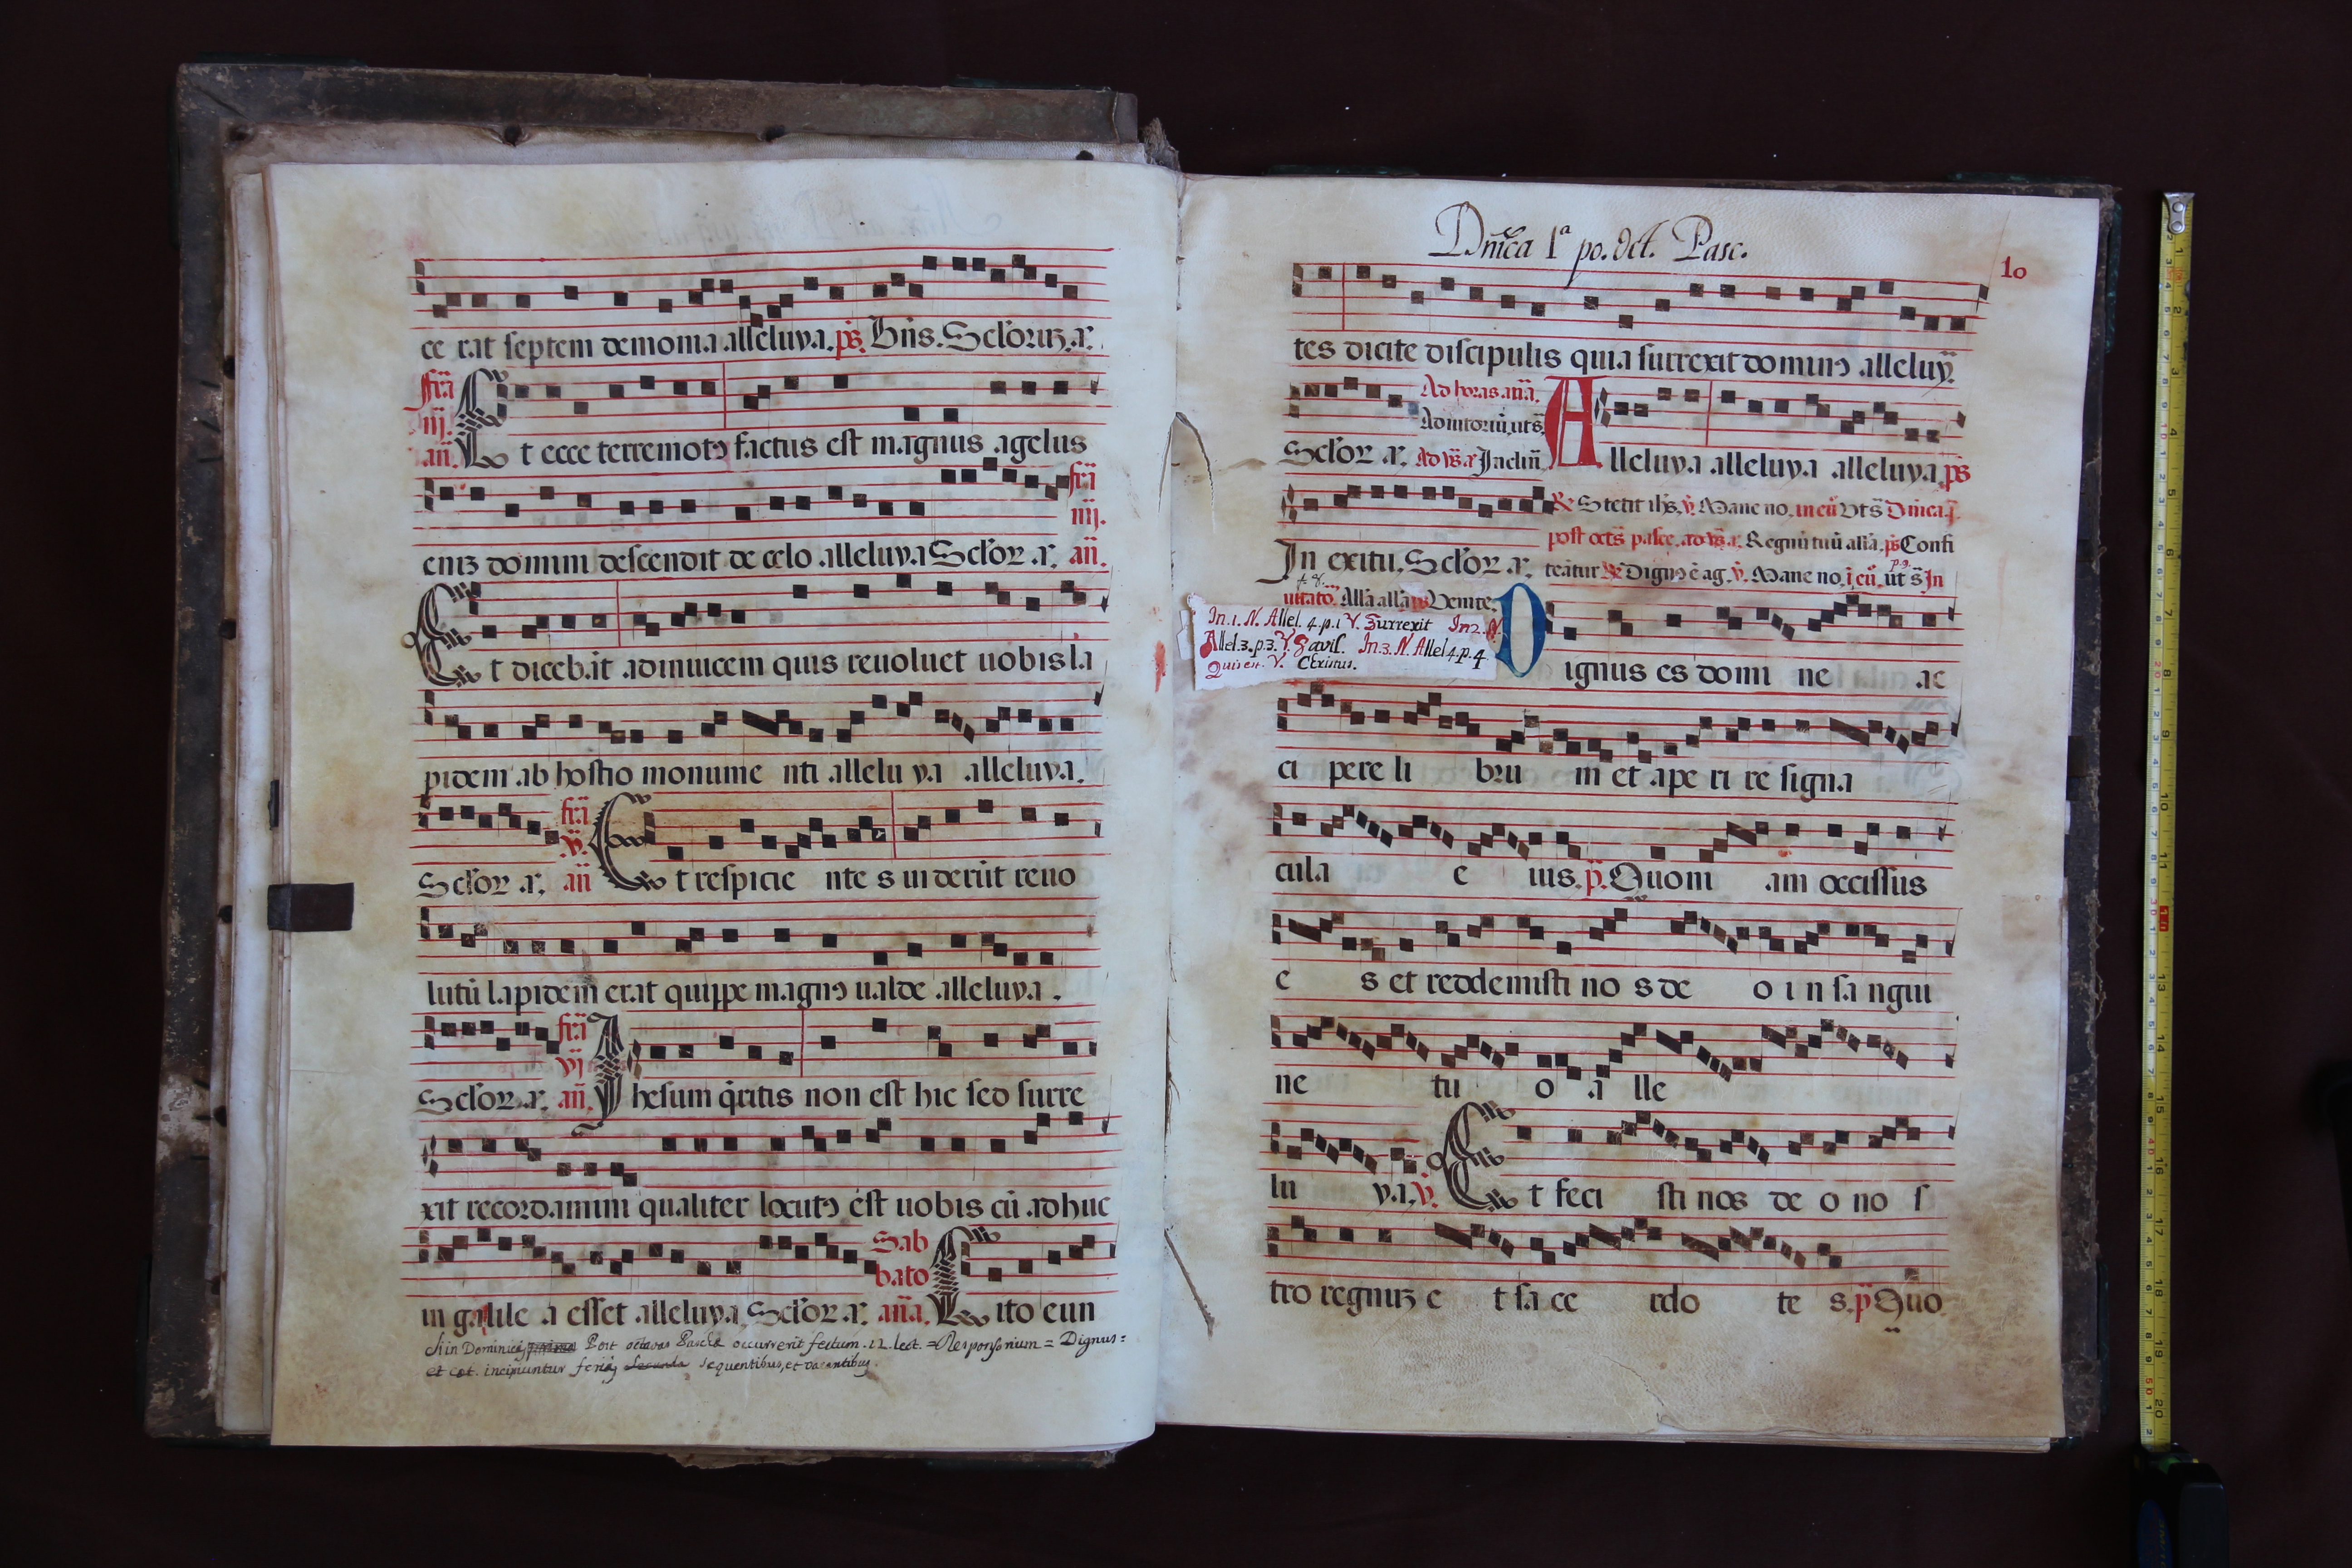 ce rat septem demonia alleluya. ps̄. Bn̄s. Sclōrꝝ. a.
fr̃a
iij.
an̄. Et ecce terremotꝰ factus est magnus agelus
enīz domini descendit de celo alleluya Sclōr. a. fr̃a
iiij.
an̄.
Et diceb.at adinuicem quis reuoluet uobis la
pidem ab hostio monume nti allelu ya alleluya.
Sclōr. a. fr̃a v. an̄ Et respicie nte s uiderūt reuo
lutū lapidem erat quippe magnꝰ ualde alleluya.
Sclōr. a. fr̃a vj an̄. Ihesum q̄ritis non est hic sed surre
xit recordamini qualiter locutꝰ est uobis cū adhuc
in galile a esset alleluya. Sclōr. a. Sab
bato an̄a. Cito eun
Si in Dominica Post octavas Pascha occurrerit festum .12. lect. = Responsorium = Dignus =
et cæt. incipiuntur feriis sequentibus, et vacantibus.
Dn̄ica 1ª po. Oct. Pasc.
10
tes dicite discipulis quia surrexit dominꝰ alleluy̅.
Ad horas an̄a.
Adiutoriū, ut s̄.
Sclōr. a. Ad ꝟs̄. a. Inclin̄ Alleluya alleluya alleluya. ps̄
In exitu. Sclōr. a. ℟ Stetit ihs̄. ꝟ. Mane no. in eū Vt s̄ Dn̄ica. j.
post octs̄ pasce. ad ꝟs̄. a. Regnū tuū allā. ps̄ Confi
teātur ℟ Dignꝰ ē ag. ꝟ. Mane no. i eū. ut s̄ In
uitato. Allā allā ps̄ Venite.
In. 1. N. Allel. 4. p. 1 V. Surrexit In 2. N.
Allel. 3. p. 3. V. Gavis. In. 3. N. Allel 4. p. 4
Quis en. V. Christus.
Dignus es domi ne ac
ci pere li bru m et ape ri re signa
cula e ius. p̄. Quoni am occissus
e s et reddemisti no s de o i n sa ngui
ne tu o a lle
lu ya. ꝟ. Et feci sti nos de o no s
tro regnuꝫ e t sa ce rdo te s. p̄ Quo